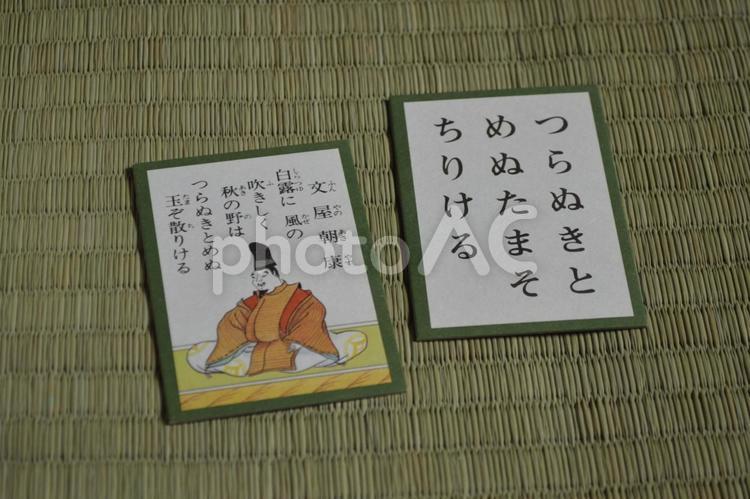 文屋朝康
白露に 風の
吹きしく
秋の野は
つらぬきとめぬ
玉ぞ散りける
つらぬきと
めぬたまそ
ちりける
photoAC